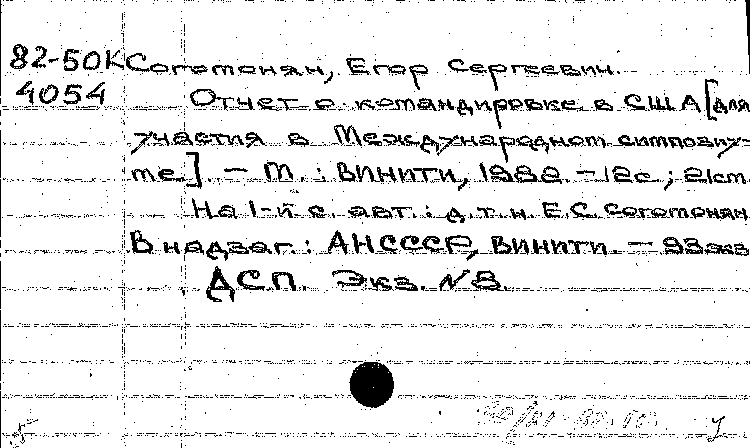 82-50К Согомонян, Егор Сергеевич.
4054 Отчет о командировке в США [для
участия в Международном симпозиу-
ме]. — М. : ВИНИТИ, 1982. – 12с ; 21см.
На 1-й с. авт.: д.т.н. Е.С. Согомонян
В надзаг.: АНСССР, ВИНИТИ. — 93экз
ДСП. Экз. №8.